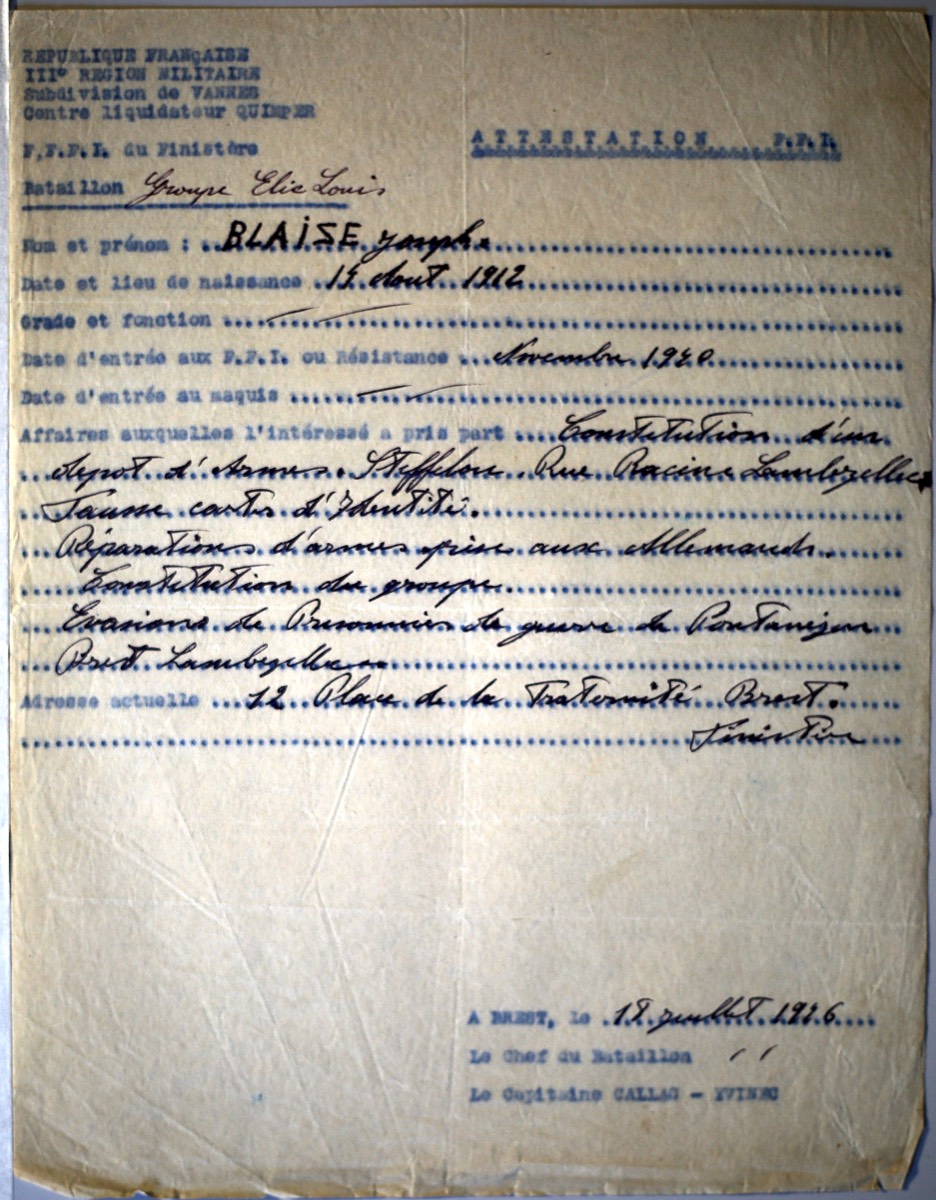 REPUBLIQUE FRANÇAISE
IIIº REGION MILITAIRE
Subdivision de VANNES
Centre liquidateur QUIMPER
F.F.F.I. du Finistère
ATTESTATION F.F.I.
Bataillon Groupe Elie Louis
Nom et prénom : BLAISE Joseph.
Date et lieu de naissance Aout 1912
Grade et fonction
Date d'entrée aux F.F.I. ou Résistance Novembre 1940
Date d'entrée au maquis
Affaires auxquelles l'intéressé a pris part Constitution d'un
depot d'Armes. Rue Racine Lambezellec
Fausse cartes d'Identité.
Réparations d'armes prise aux Allemands.
Constitution du groupe.
Evasions de Prisonniers de guerre de Pontanezen
Brest Lambezellec
Adresse actuelle 12 Place de la Fraternité Brest.
Finistère
A BREST, le 18 juillet 1946
Le Chef du Bataillon
Le Capitaine CALLAG - YVINEC